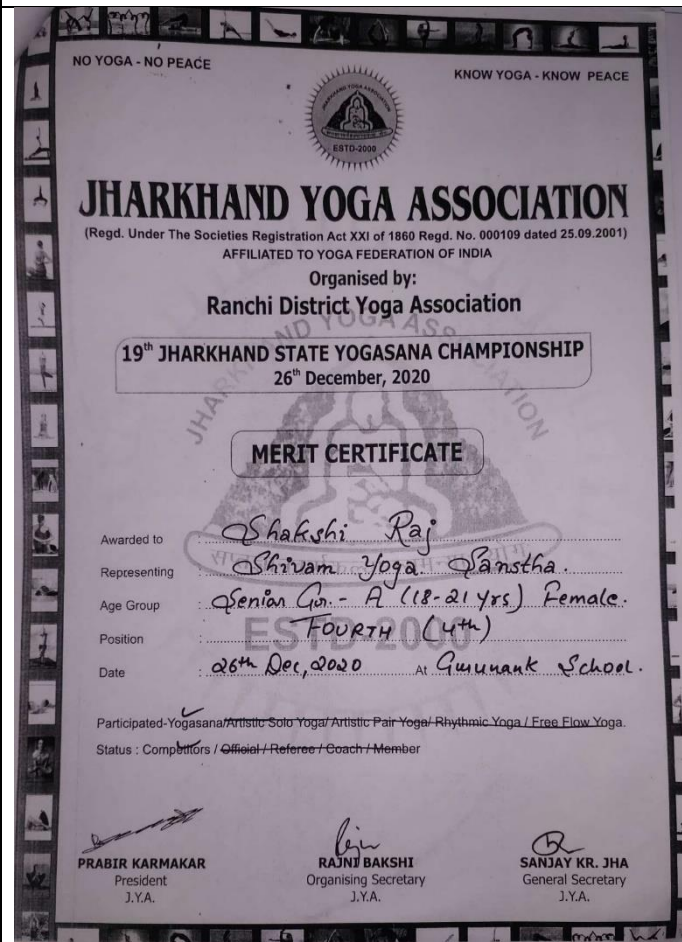 NO YOGA - NO PEACE
KNOW YOGA - KNOW PEACE
ESTD-2000
JHARKHAND YOGA ASSOCIATION
(Regd. Under The Societies Registration Act XXI of 1860 Regd. No. 000109 dated 25.09.2001)
AFFILIATED TO YOGA FEDERATION OF INDIA
Organised by:
Ranchi District Yoga Association
19th JHARKHAND STATE YOGASANA CHAMPIONSHIP
26th December, 2020
JHARKHAND YOGA ASSOCIATION
MERIT CERTIFICATE
Awarded to : Shakshi Raj
Representing : Shivam Yoga Sanstha.
Age Group : Senior Gr. - A (18-21 yrs) Female.
Position : FOURTH (4th)
ESTD-2000
Date : 26th Dec, 2020 At Gurunank School.
Participated-Yogasana/Artistic Solo Yoga/ Artistic Pair Yoga/ Rhythmic Yoga / Free Flow Yoga.
Status : Competitors / Official / Referee / Coach / Member
PRABIR KARMAKAR
President
J.Y.A.
RAJNI BAKSHI
Organising Secretary
J.Y.A.
SANJAY KR. JHA
General Secretary
J.Y.A.